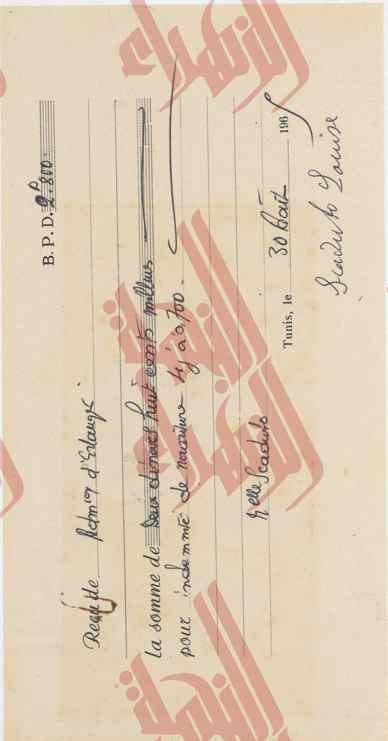 B. P. D. 2D.800.
Reçu de Admon d'Erlanger
la somme de Deux dinars huit cents millims
pour indemnité de nourriture 4j à 0,700.
Melle Scaduto
Tunis, le 30 Août 1965
Scaduto Louise
الزهراء
الزهراء
الزهراء
الزهراء